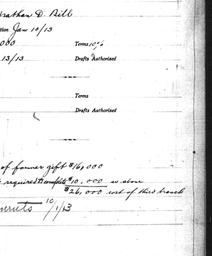 Jonathan D. Bill
tion Jan 10/13
000 Terms 10%
13/13 Drafts Authorized
Terms
Drafts Authorized
of former gift $16,000
required to complete $10,000 as above
$26,000 cost of third branch
10/1/13